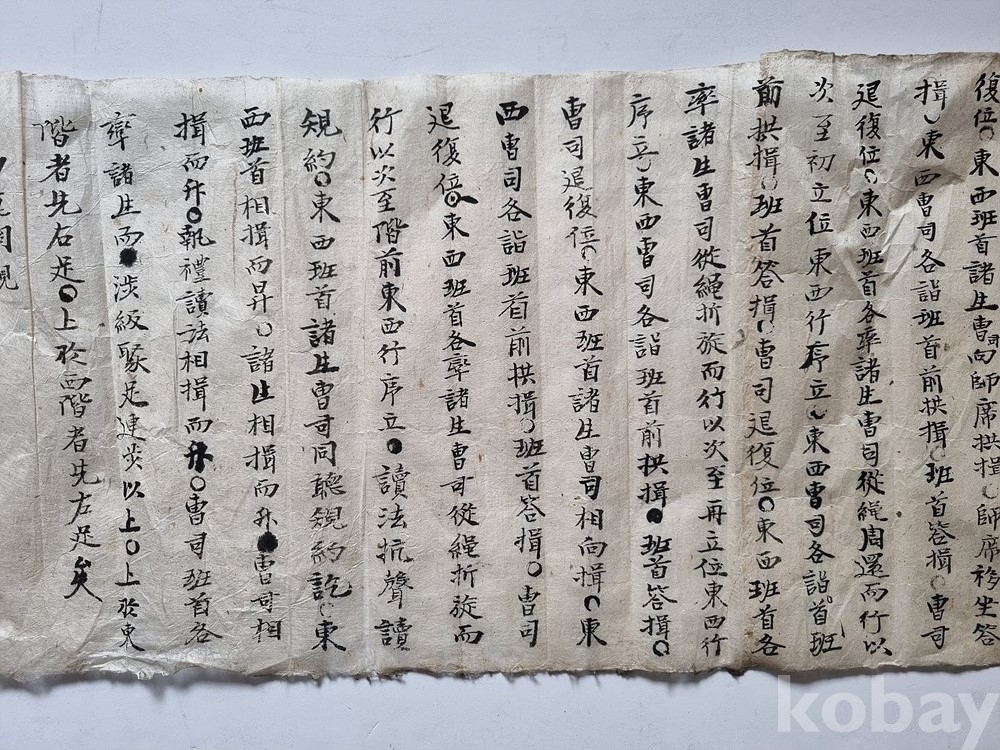 復位○東西班首諸生曹司向師席拱揖○師席移坐答
揖○東西曹司各詣班首前拱揖○班首答揖○曹司
退復位○東西班首各率諸生曹司從繩周還而行以
次至初立位東西行序立○東西曹司各詣首班
前拱揖○班首答揖○曹司退復位○東西班首各
率諸生曹司從繩折旋而行以次至再立位東西行
序立○東西曹司各詣班首前拱揖○班首答揖○
曹司退復位○東西班首諸生曹司相向揖○東
西曹司各詣班首前拱揖○班首答揖○曹司
退復位○東西班首各率諸生曹司從繩折旋而
行以次至階前東西行序立○讀法抗聲讀
規約○東西班首諸生曹司同聽規約訖○東
西班首相揖而昇○諸生相揖而升○曹司相
揖而升○執禮讀法相揖而升○曹司班首各
率諸生而涉級聚足連步以上○上於東
階者先右足○上於西階者先左足矣
相視
kobay